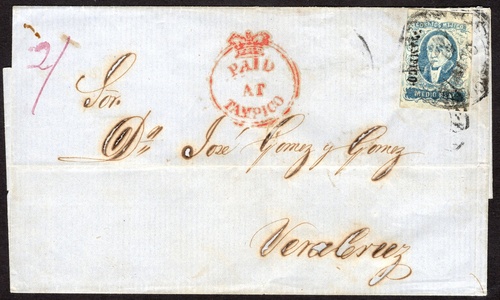 2/
PAID
AT
TAMPICO
CORREOS MEJICO
MEDIO REAL
Sor.
Dn. José Gomez y Gomez
Vera Cruz